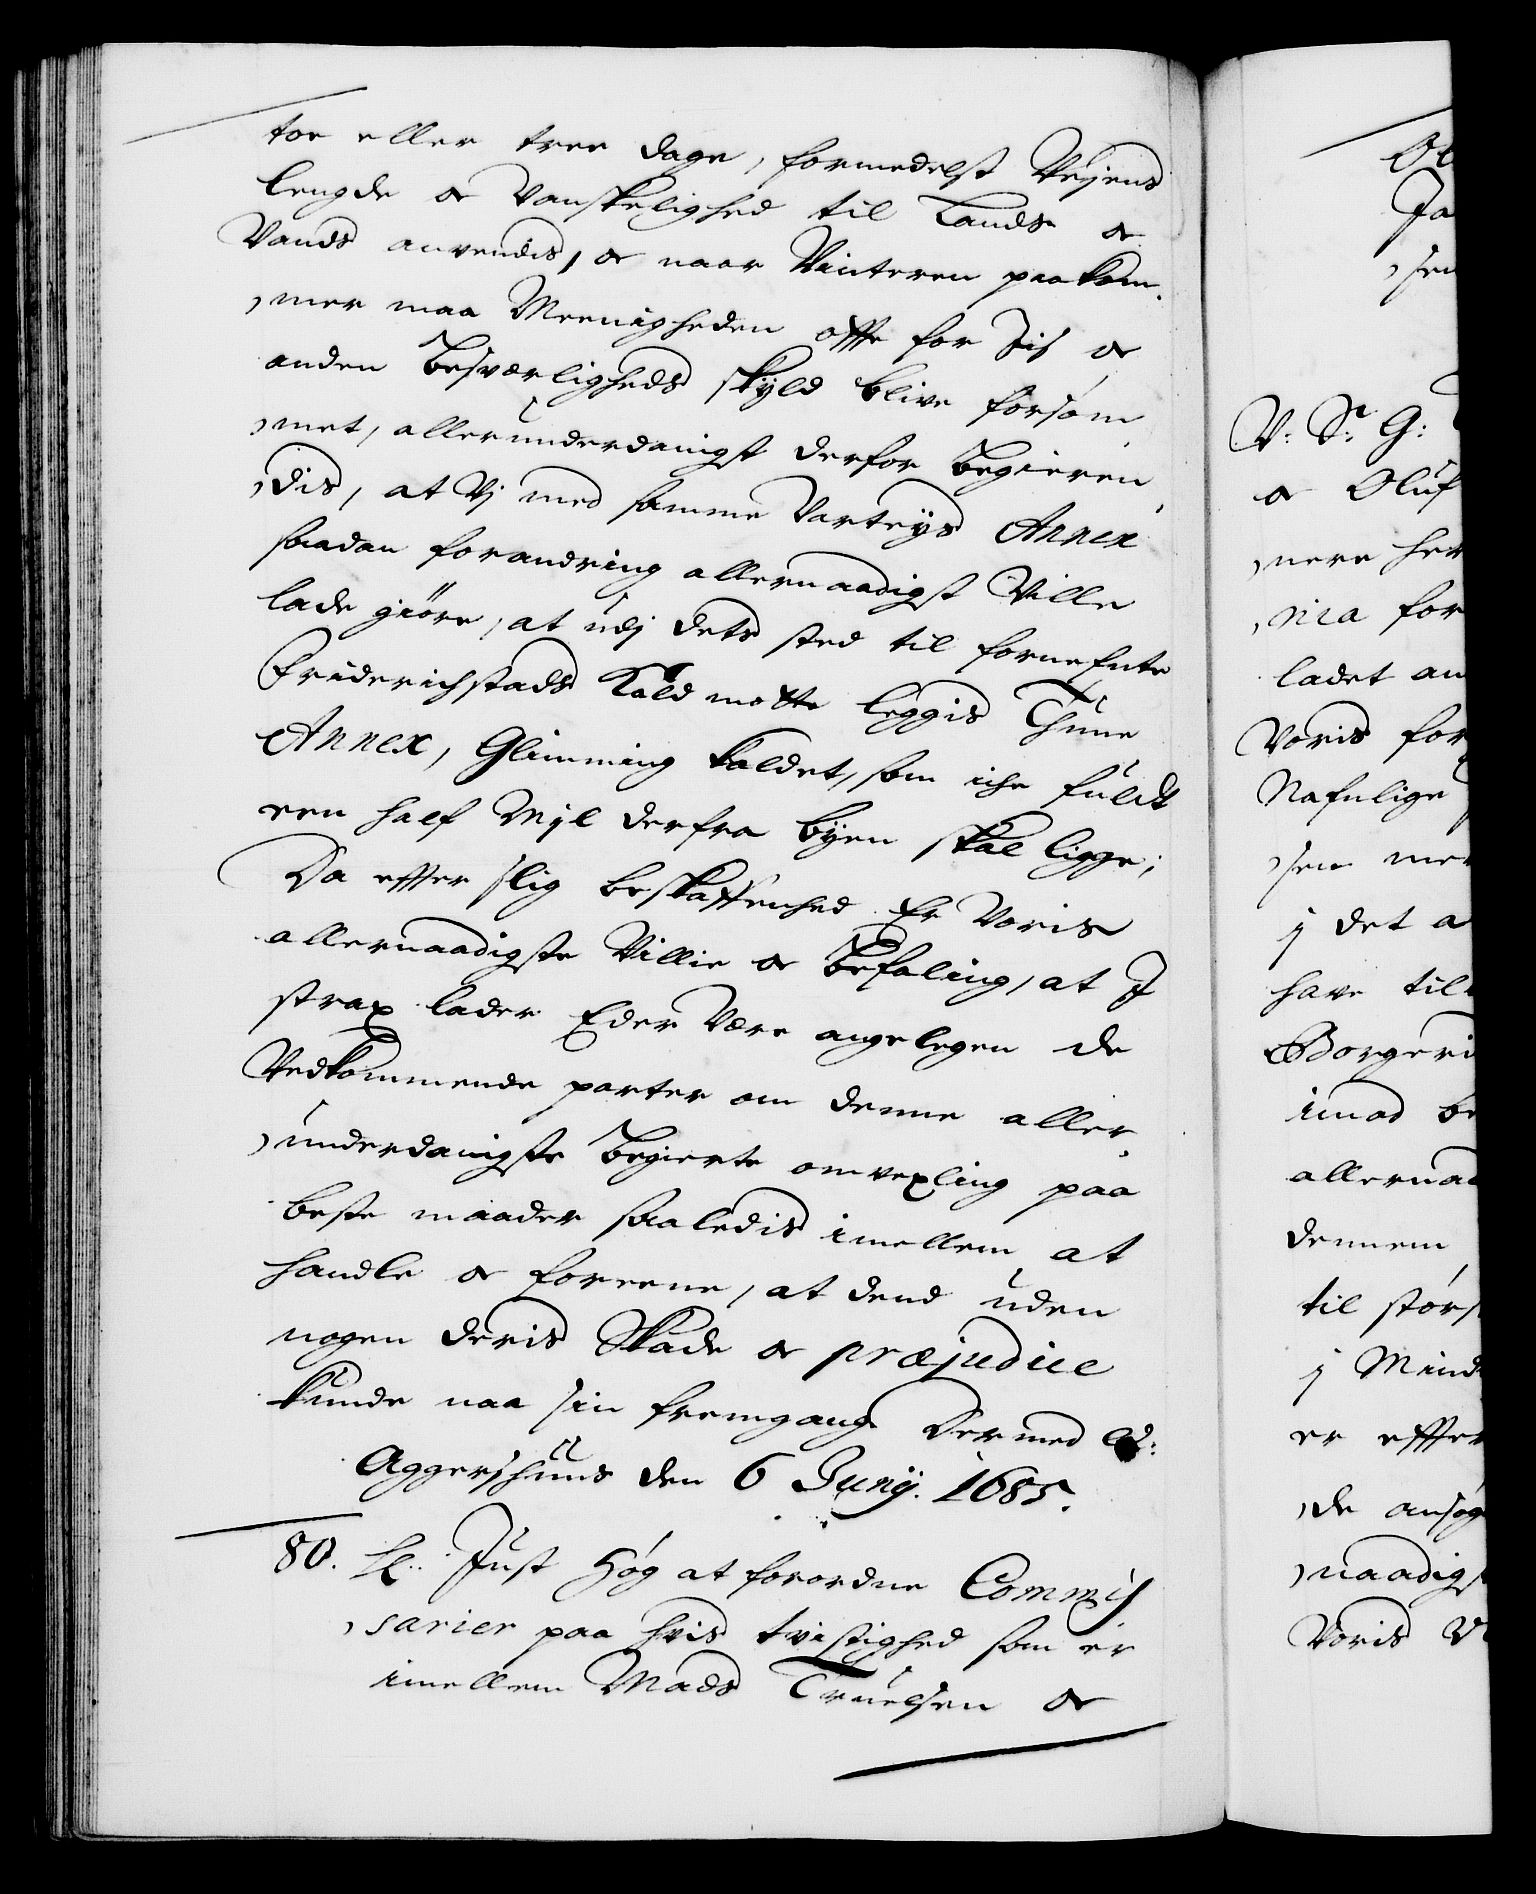 toe eller tree dage, formedelst Vejens
lengde oc Vanskelighed til Lands oc
Vands anvendis, oc naar Vinteren paakom-
mer maa Meenigheden offte for Jis oc
anden Besværligheds skyld blive forsøm-
met, allerunderdanigst derfor begieren-
dis, at Vj med samme Varteigs Annex
saadan forandring allernaadigst Ville
lade giøre, at udj dets sted til forneffnte
Friderichstads Kald motte leggis Thune
Annex, Glimming kaldet, som iche fuldt
een half Mjl derfra byen skal ligge;
Da effter slig beskaffenhed Er Voris
allernaadigste Villie oc Befaling, at I
strax lader Eder Være angelegen de
Vedkommende parter om denne aller-
underdanigste Begierte omvexling paa
beste maader saaledis imellem at
handle oc foreene, at dend uden
nogen deris Skade oc præjudice
kunde naa sin fremgang. Dermed
Aggershuus den 6 Junij. 1685.
80. Just Høg at forordne Commis-
sarier paa hvis tvistighed som er
imellem Mads Truelsen oc
Ol
Ja
sen
V: S: G:
oc Oluf
nere her
nia for
ladet an
Voris for
Nafnlige
sen me
j det a
have til
Borgeri
imod be
allernaa
dennem
til størs
j Mind
er effter
de ansøg
naadigs
Voris V